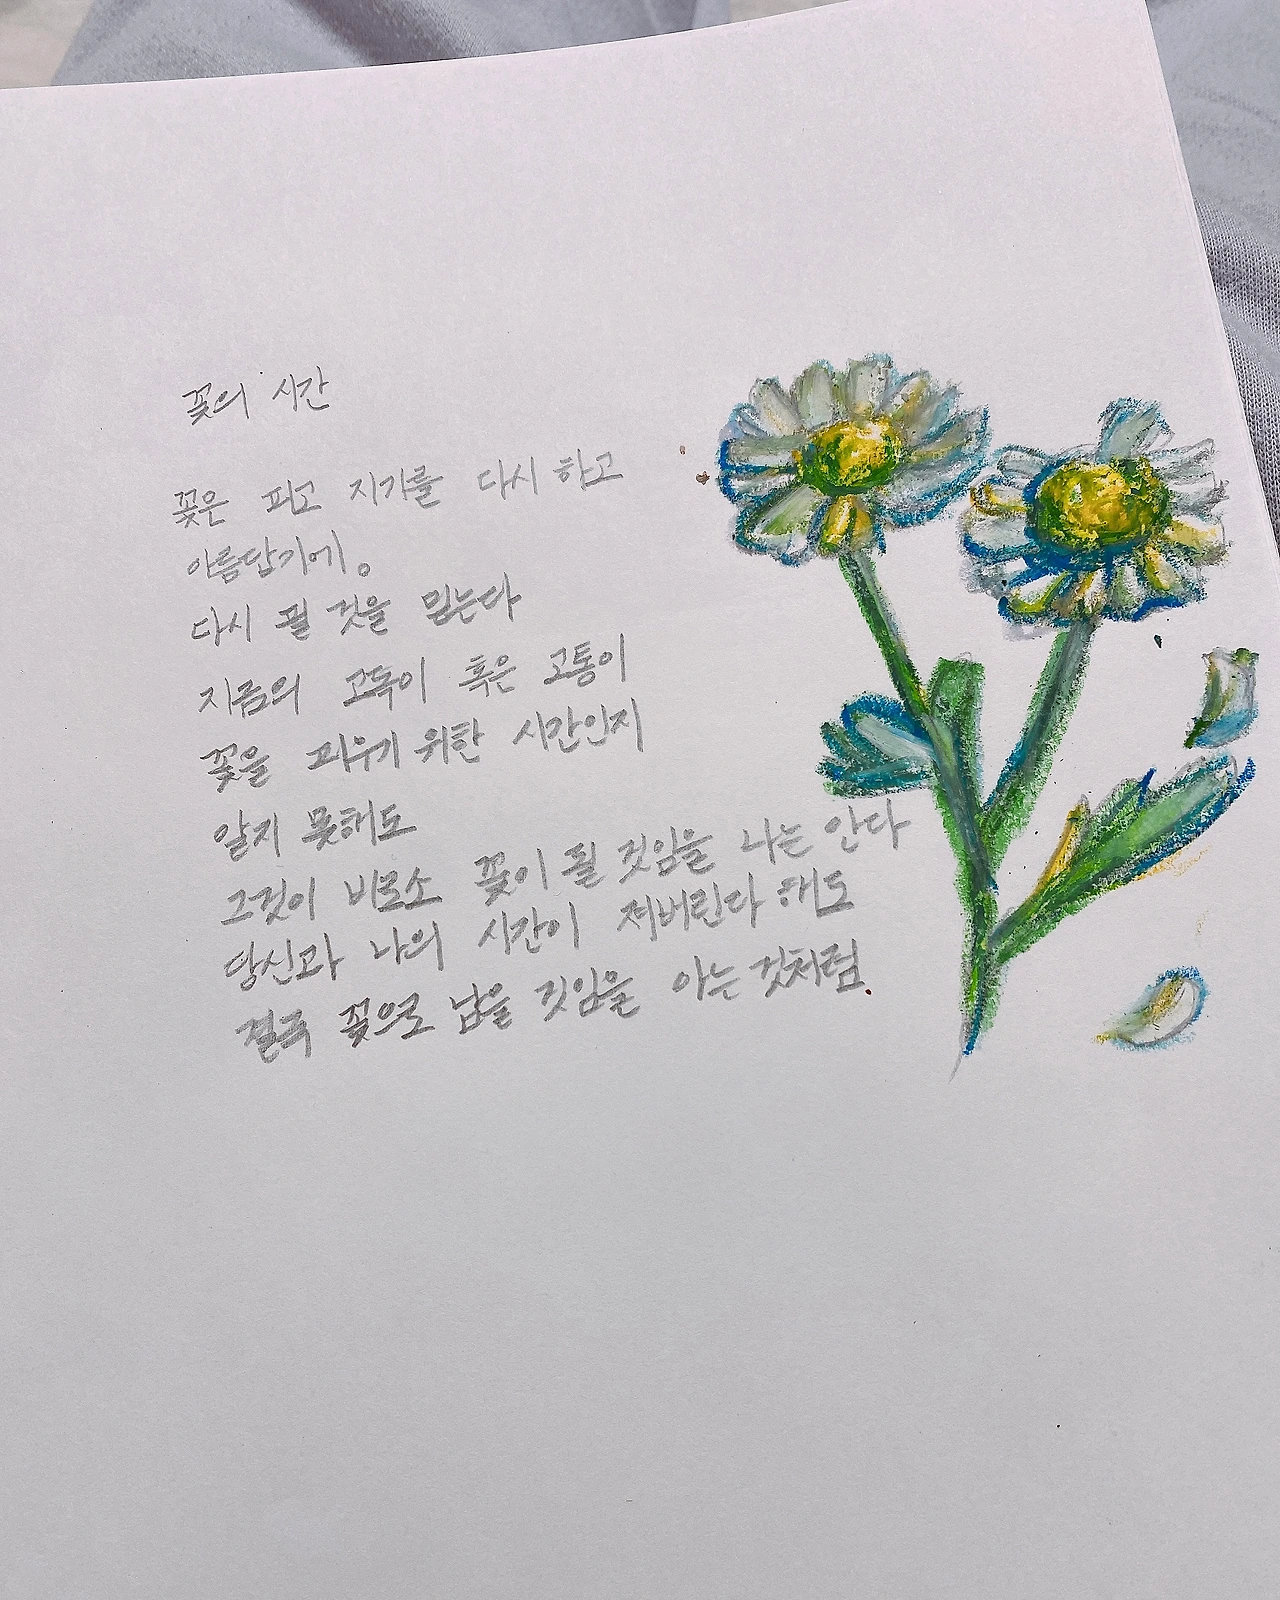 꽃의 시간
꽃은 피고 지기를 다시 하고
아름답기에。
다시 필 것을 믿는다
지금의 고독이 혹은 고통이
꽃을 피우기 위한 시간인지
알지 못해도
그것이 비로소 꽃이 필 것임을 나는 안다
당신과 나의 시간이 져버린다 해도
결국 꽃으로 남을 것임을 아는 것처럼